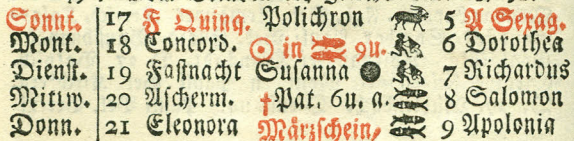 Sonnt. 17 F Quinq. Polichron 5 A Sexag.
Mont. 18 Concord. ☉ in ♓ 9u. 6 Dorothea
Dienst. 19 Fastnacht Susanna ● 7 Richardus
Mittw. 20 Ascherm. †Pat. 6u. a. 8 Salomon
Donn. 21 Eleonora Märzschein/ 9 Apolonia